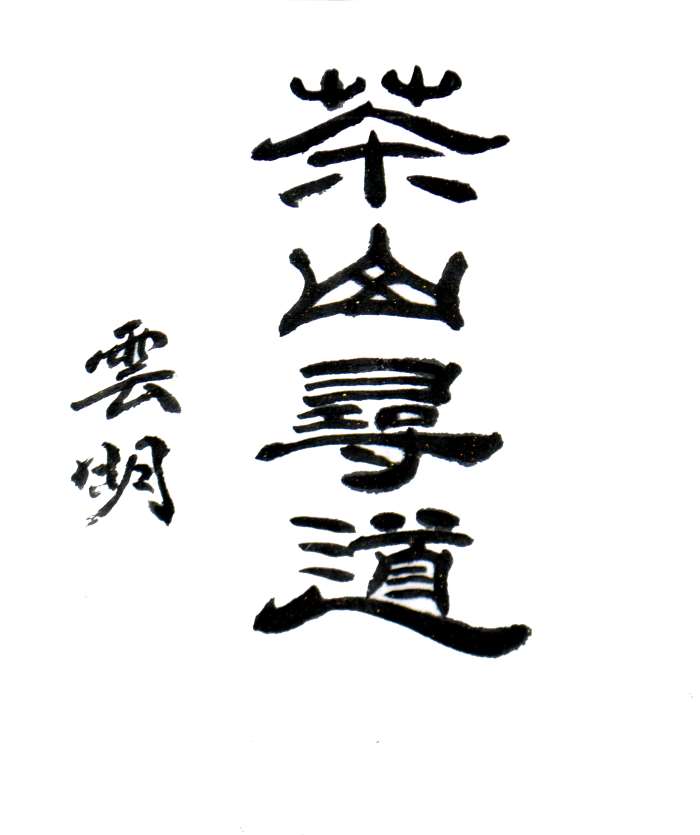 茶山尋道
雲明